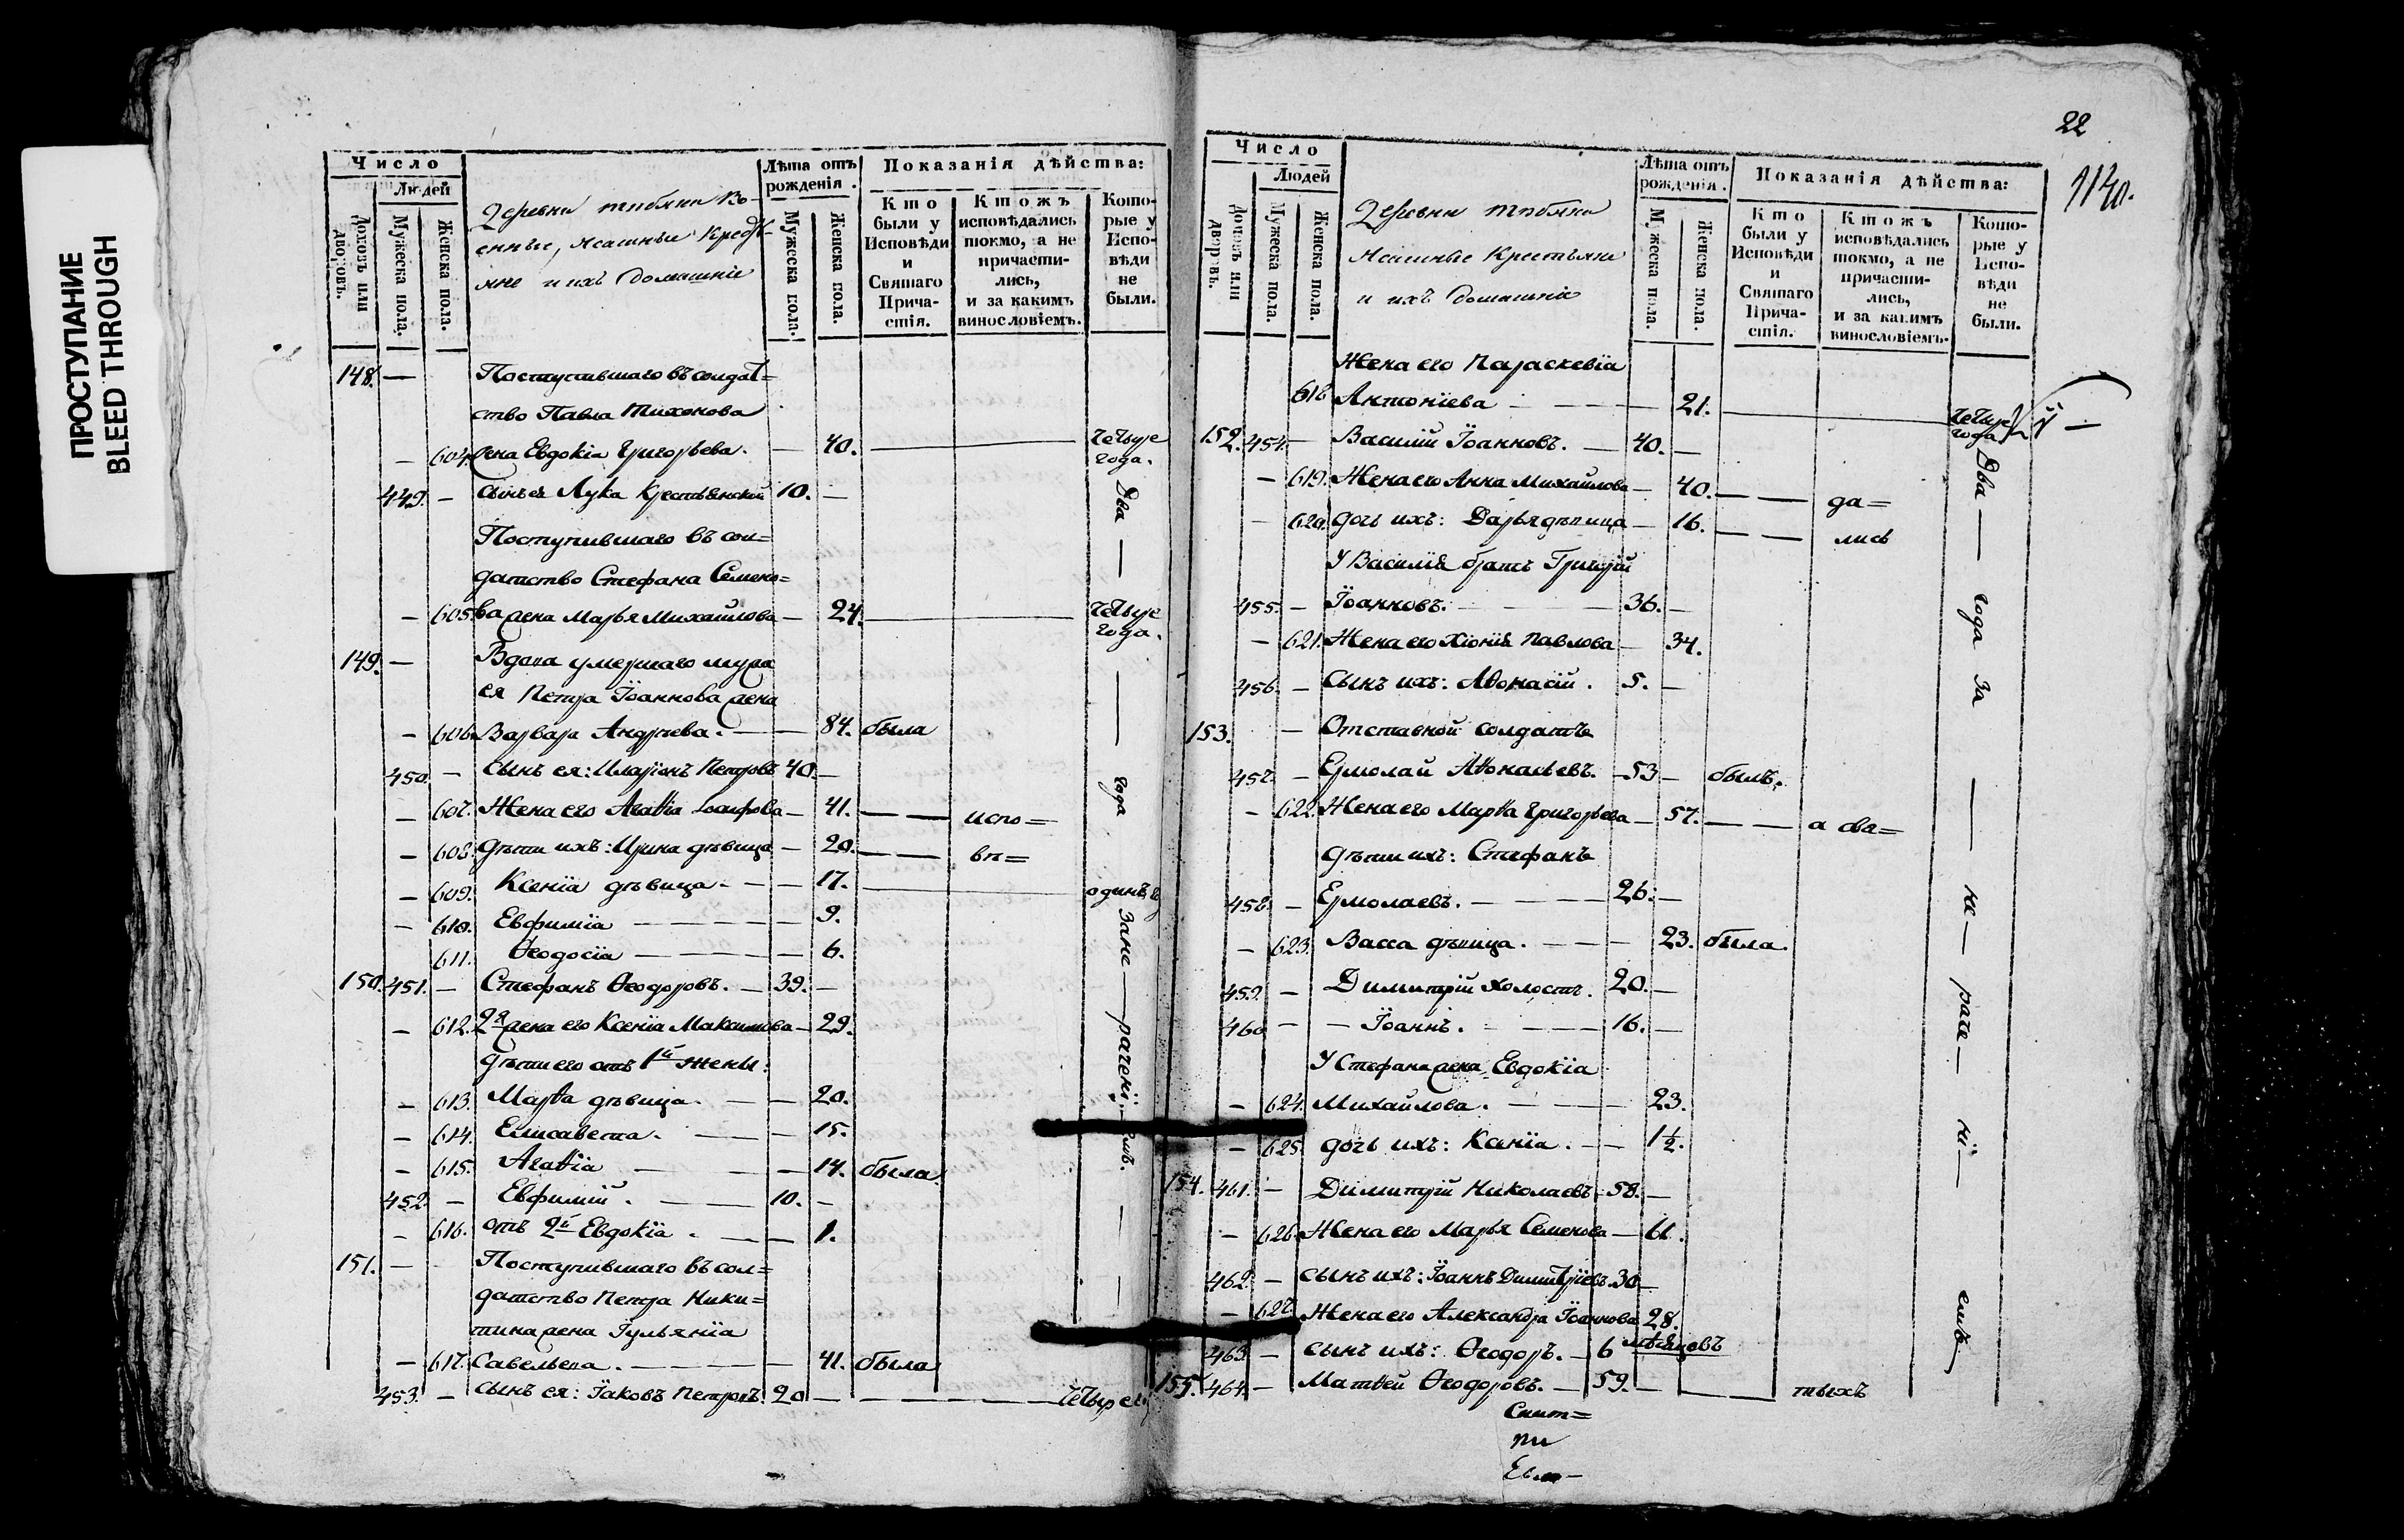 ПРОСТУПАНИЕ
BLEED THROUGH
Число
Людей
Домовъ или дворовъ.
Мужеска пола.
Женска пола.
Деревни
енные, Ясашные Крестья-
яне и ихъ домашніе
Лѣта отъ рожденія.
Мужеска пола.
Женска пола.
Показанія дѣйства:
Кто были у Исповѣди и Святаго Прича-стія.
Ктожъ исповѣдались токмо, а не причасти-лись, и за какимъ винословіемъ.
Кото-рые у Испо-вѣди не были.
148. — Поступившаго въ солдат=
ство Павла Тихонова
— 604. жена Евдокіа Григорьева. — 40. четыре года.
449. — сынъ ея Лука Крестьянской 10. —
Поступившаго въ сол=
датство Стефана Семено=
— 605. ва жена Марья Михайлова — 24. четыре года.
149. — Вдова умершаго мужа
ея Петра Іоаннова жена
— 606. Варвара Андреева. — 84. была
450. — сынъ ея: Иларіонъ Петровъ 40. —
— 607. Жена его Агаѳіа — 41. — испо=
— 608. дѣти ихъ: Ирина дѣвица — 20. — вѣ=
— 609. Ксеніа дѣвица. — 17. одинъ
— 610. Евфиміа — 9.
611. Ѳеодосіа — 6.
150. 451. — Стефанъ Ѳеодоровъ. — 39. —
— 612. 2я жена его Ксеніа Максимова — 29.
дѣти его отъ 1й жены:
— 613. Марѳа дѣвица. — 20.
— 614. Елисавета. — 15.
— 615. Агаѳіа — 14. была
452. — Евфимій. — 10. —
— 616. отъ 2й Евдокіа. — 1.
151. — Поступившаго въ сол=
датство Петра Ники=
тина жена Іульяніа
— 617. Савельева. — 41. была
453. — сынъ ея: Іаковъ Петровъ. 20 — четыре
Два — — года
зане — рачені — емъ.
22
1140.
Число
Людей
Домовъ или дворовъ.
Мужеска пола.
Женска пола.
Деревни
Ясашные Крестьяне
и ихъ домашніе
Лѣта отъ рожденія.
Мужеска пола.
Женска пола.
Показанія дѣйства:
Кто были у Исповѣди и Святаго Прича-стія.
Ктожъ исповѣдались токмо, а не причасти-лись, и за какимъ винословіемъ.
Кото-рые у Испо-вѣди не были.
Жена его Параскевіа
618 Антоніева — 21. четыре года
152. 454. — Василій Іоанновъ. — 40. —
— 619. Жена его Анна Михайлова — 40. — да=
— 620. дочь ихъ: Дарья дѣвица — 16. — лись
У Василія братъ Григорій
455. — Іоанновъ. — 36. —
— 621. Жена его Хіонія Павлова — 34.
456. — Сынъ ихъ: Аѳонасій. 5. —
153. — Отставной солдатъ
457. — Ермолай Аѳонасьевъ. — 53 — былъ.
— 622. Жена его Марѳа Григорьева — 57. —
дѣти ихъ: Стефанъ
458. — Ермолаевъ. — 26. —
— 623. Васса дѣвица. — 23. была.
459. — Димитрій холостъ. 20. —
460 — — Іоаннъ. — 16. —
У Стефана жена Евдокіа
— 624. Михайлова. — 23.
— 625. дочь ихъ: Ксеніа. — 1½.
154. 461. — Димитрій Николаевъ — 58. —
— 626. Жена его Марья Семенова — 61.
462. — сынъ ихъ: Іоаннъ Димитріевъ. 30 —
— 627. Жена его Александра Іоаннова 28.
463. — сынъ ихъ: Ѳеодоръ. — 6 мѣсяцовъ
155. 464. — Матѳей Ѳеодоровъ. — 59. —
Два — года за — не — раче — ні — емъ